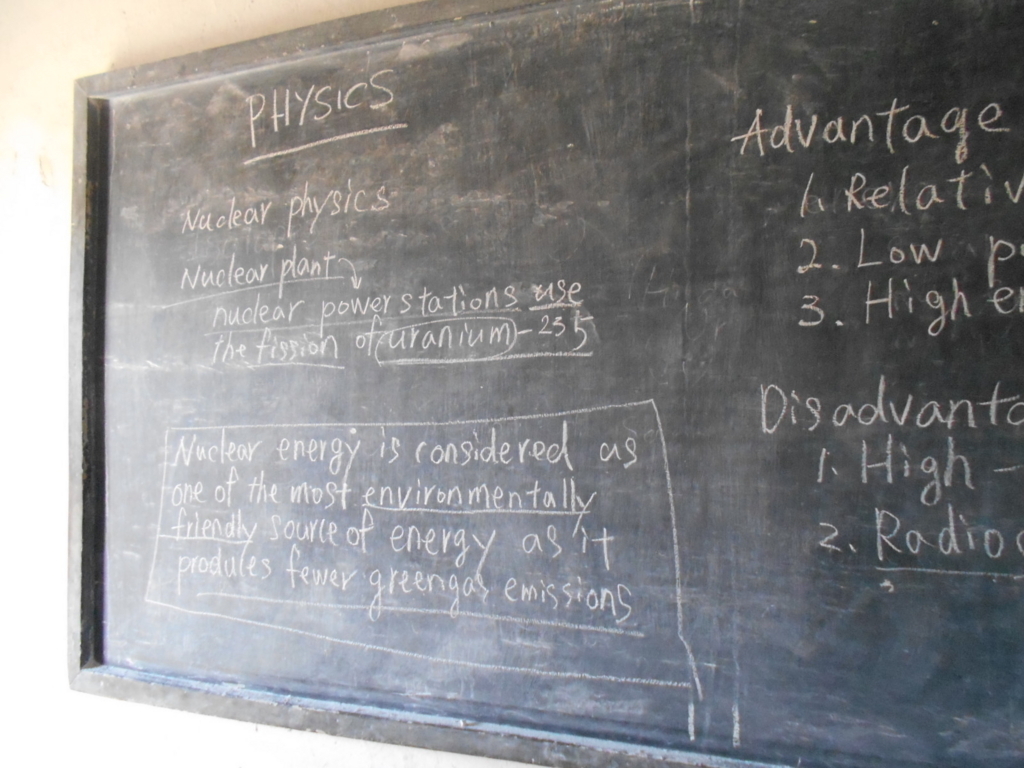 PHYSICS
Nuclear physics
Nuclear plant
nuclear power stations use
the fission of uranium-235
Nuclear energy is considered as
one of the most environmentally
friendly source of energy as it
produles fewer greengas emissions
Advantage
1. Relativ
2. Low p
3. High e
Disadvanta
1. High -
2. Radio